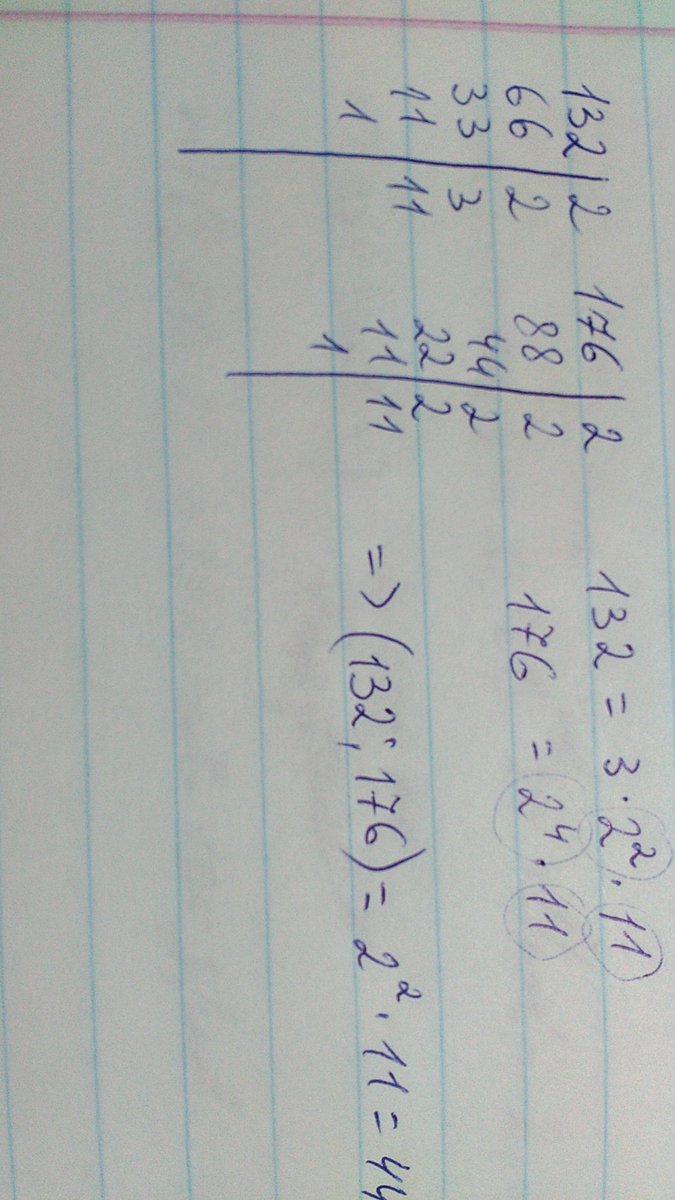 132|2
66|2
33|3
11|11
1|
176|2
88|2
44|2
22|2
11|11
1|
132 = 3 · 2² · 11
176 = 2⁴ · 11
=> (132; 176) = 2² · 11 = 44